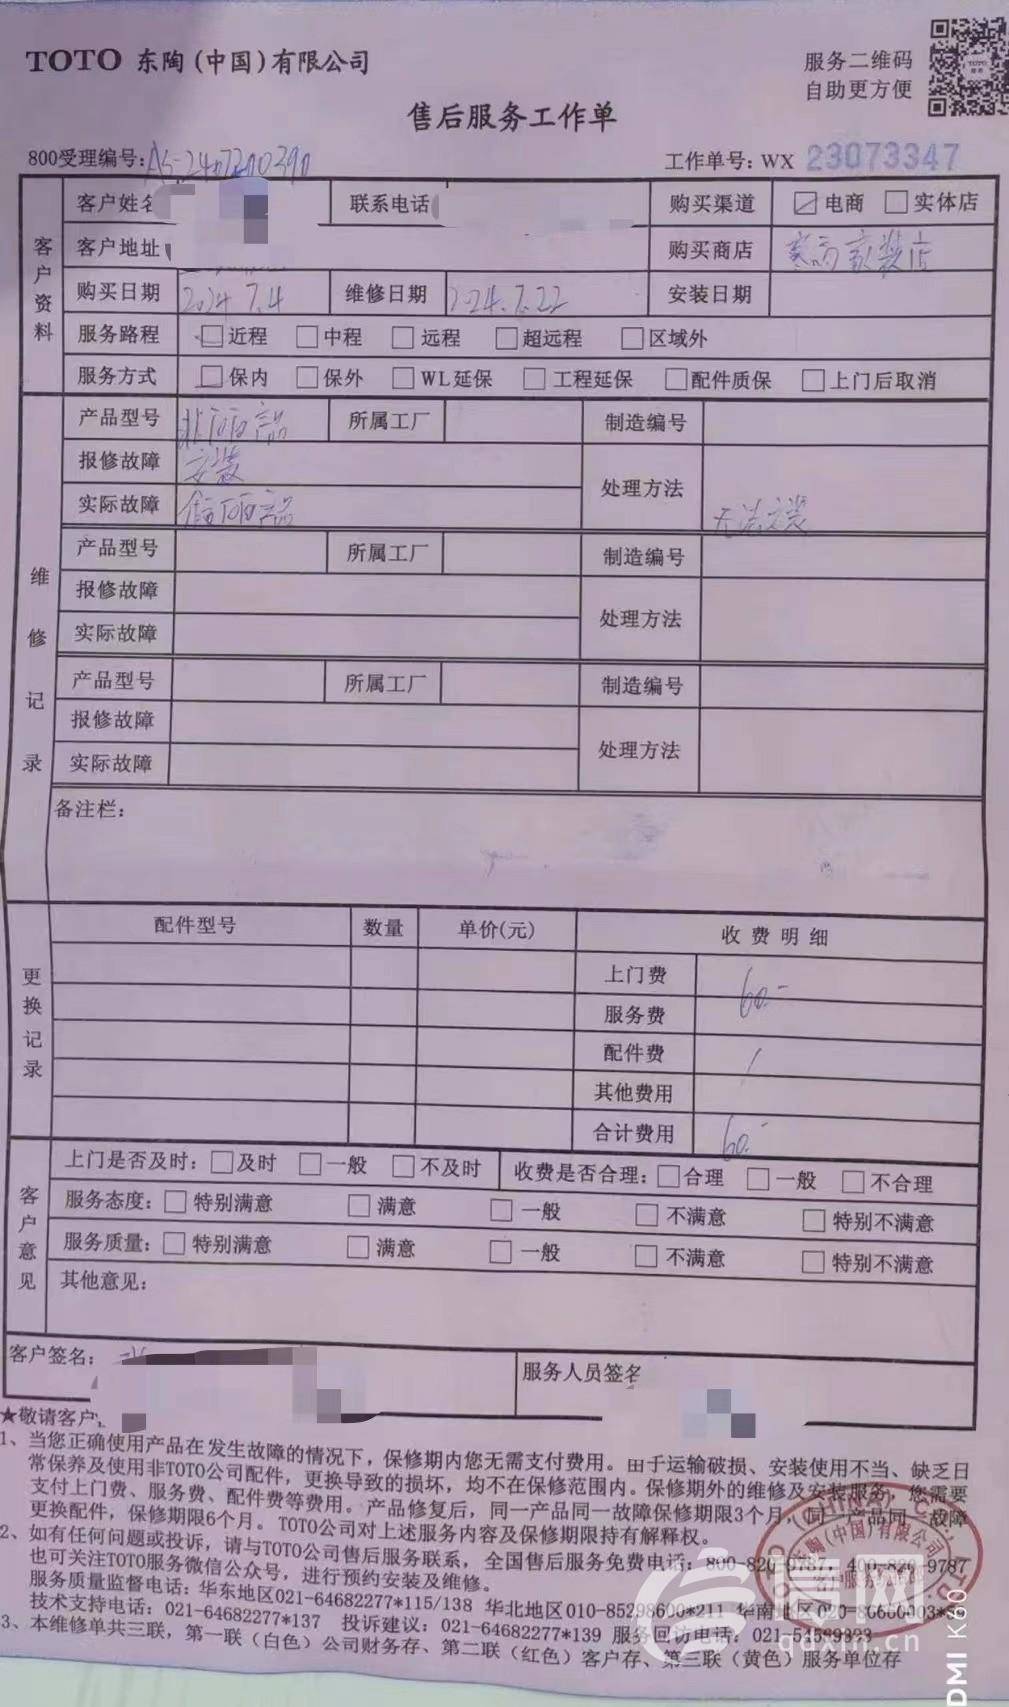 TOTO 东陶(中国)有限公司
服务二维码
自助更方便
售后服务工作单
800受理编号: 工作单号: WX 23073347
客户资料
客户姓名 联系电话 购买渠道 电商 实体店
客户地址 购买商店 家装店
购买日期 2024.7.4 维修日期 2024.7.22 安装日期
服务路程 近程 中程 远程 超远程 区域外
服务方式 保内 保外 WL延保 工程延保 配件质保 上门后取消
维修记录
产品型号 非TOTO产品 所属工厂 制造编号
报修故障 安装
实际故障 假TOTO产品 处理方法 无法安装
产品型号 所属工厂 制造编号
报修故障
实际故障 处理方法
产品型号 所属工厂 制造编号
报修故障
实际故障 处理方法
备注栏:
更换记录
配件型号 数量 单价(元) 收费明细
上门费 60.-
服务费
配件费 /
其他费用
合计费用 60.-
客户意见
上门是否及时: 及时 一般 不及时 收费是否合理: 合理 一般 不合理
服务态度: 特别满意 满意 一般 不满意 特别不满意
服务质量: 特别满意 满意 一般 不满意 特别不满意
其他意见:
客户签名: 服务人员签名
★敬请客户
1、当您正确使用产品在发生故障的情况下，保修期内您无需支付费用。由于运输破损、安装使用不当、缺乏日
常保养及使用非TOTO公司配件，更换导致的损坏，均不在保修范围内。保修期外的维修及安装服务，您需要
支付上门费、服务费、配件费等费用。产品修复后，同一产品同一故障保修期限3个月，同一产品同一故障
更换配件，保修期限6个月。TOTO公司对上述服务内容及保修期限持有解释权。
2、如有任何问题或投诉，请与TOTO公司售后服务联系，全国售后服务免费电话: 800-820-9787, 400-820-9787
也可关注TOTO服务微信公众号，进行预约安装及维修。
服务质量监督电话: 华东地区021-64682277*115/138 华北地区010-85298600*211 华南地区
技术支持电话: 021-64682277*137 投诉建议: 021-64682277*139 服务回访电话:
3、本维修单共三联，第一联(白色)公司财务存、第二联(红色)客户存、第三联(黄色)服务单位存
信网
qdxin.cn
DMI K60